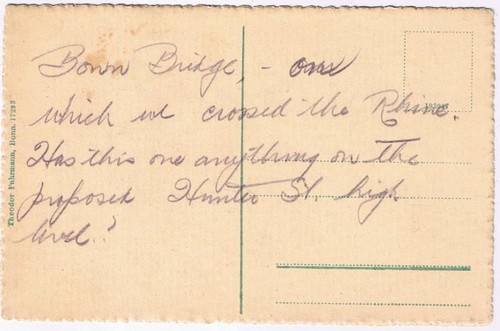 Bonn Bridge, - over
which we crossed the Rhine.
Has this one anything on the
proposed Hunter St. high
level?
Theodor Fuhrmann, Bonn. 17293